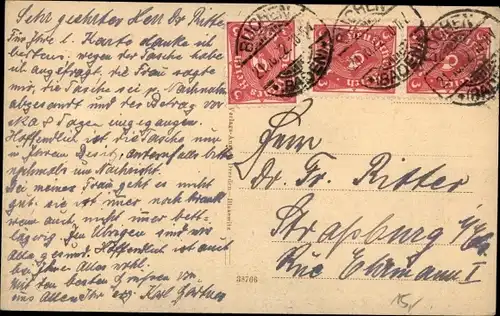 Sehr geehrten Herr Dr. Ritter
Für Ihre l. Karte danke ich
bestens; wegen der Tasche habe
ich angefragt, die Frau sagte
mir, die Tasche sei p. Nachnahme
abgesandt und der Betrag vor
8 Tagen eingegangen.
Hoffentlich ist die Tasche nun
in Ihrem Besitz, andernfalls bitte
nochmals um Nachricht.
Bei meiner Frau geht es nicht
gut. sie ist immer noch krank
wenn auch nicht immer bett-
lägerig. Im Übrigen sind wir
Alle gesund. Hoffentlich ist auch
bei Ihnen Alles wohl.
Mit den besten Grüssen von
uns Allen Ihr erg. Karl
BUCHEN
(BADEN)
BUCHEN
(BADEN)
BUCHEN
(BADEN)
Deutsches Reich
Herrn
Dr. Fr. Ritter
Straßburg i/Els.
Rue Erckmann I
38766
15,-